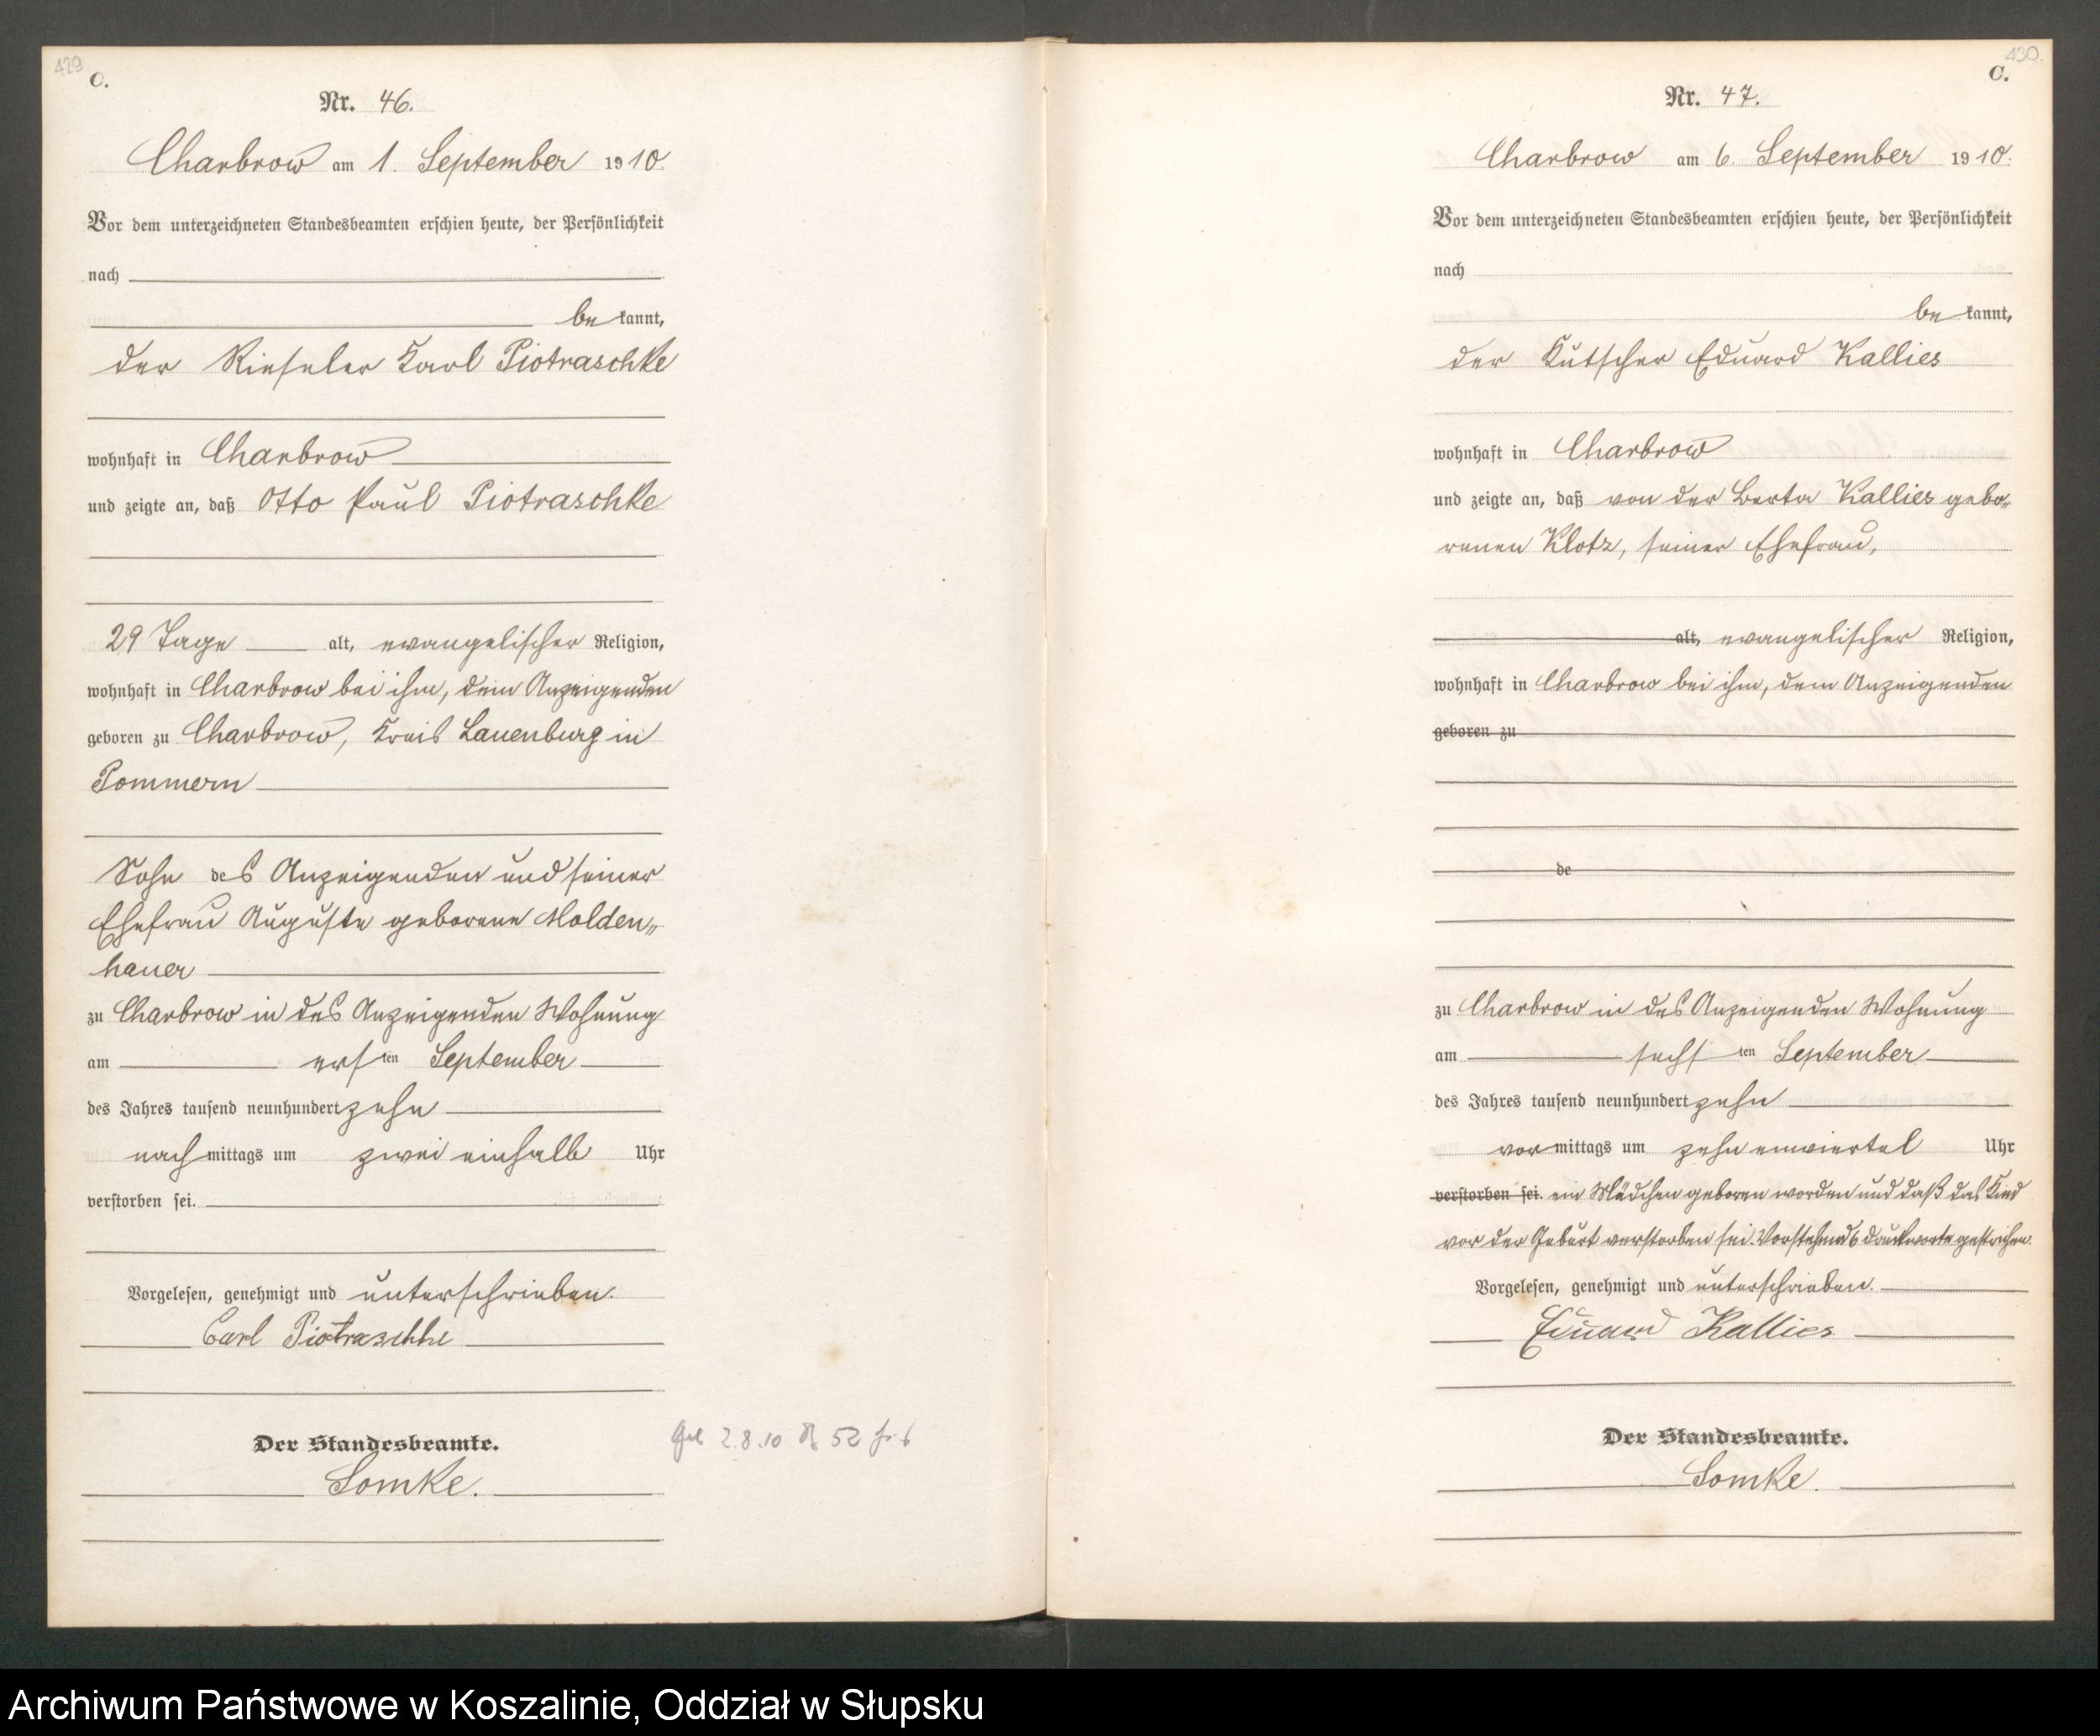 429
C.
Nr. 46.
Charbrow am 1. September 1910.
Vor dem unterzeichneten Standesbeamten erschien heute, der Persönlichkeit
nach
be kannt,
der Rieseler Karl Piotraschke
wohnhaft in Charbrow
und zeigte an, daß Otto Paul Piotraschke
29 Tage alt, evangelischer Religion,
wohnhaft in Charbrow bei ihm, dem Anzeigenden
geboren zu Charbrow, Kreis Lauenburg in
Pommern
Sohn des Anzeigenden und seiner
Ehefrau Auguste geborene Molden„
hauer
zu Charbrow in des Anzeigenden Wohnung
am ersten September
des Jahres tausend neunhundert zehn
nachmittags um zwei einhalb Uhr
verstorben sei.
Vorgelesen, genehmigt und unterschrieben.
Carl Piotraschke
Der Standesbeamte.
Somke.
2.8.10 52
430.
C.
Nr. 47.
Charbrow am 6. September 1910.
Vor dem unterzeichneten Standesbeamten erschien heute, der Persönlichkeit
nach
be kannt,
der Kutscher Eduard Kallies
wohnhaft in Charbrow
und zeigte an, daß von der Berta Kallies gebo„
renen Klotz, seiner Ehefrau,
alt, evangelischer Religion,
wohnhaft in Charbrow bei ihm, dem Anzeigenden
geboren zu
de
zu Charbrow in des Anzeigenden Wohnung
am sechsten September
des Jahres tausend neunhundert zehn
vormittags um zehn einviertel Uhr
verstorben sei. ein Mädchen geboren worden und daß das Kind
vor der Geburt verstorben sei. Vorstehend 6 Druckworte gestrichen.
Vorgelesen, genehmigt und unterschrieben.
Eduard Kallies
Der Standesbeamte.
Somke.
Archiwum Państwowe w Koszalinie, Oddział w Słupsku